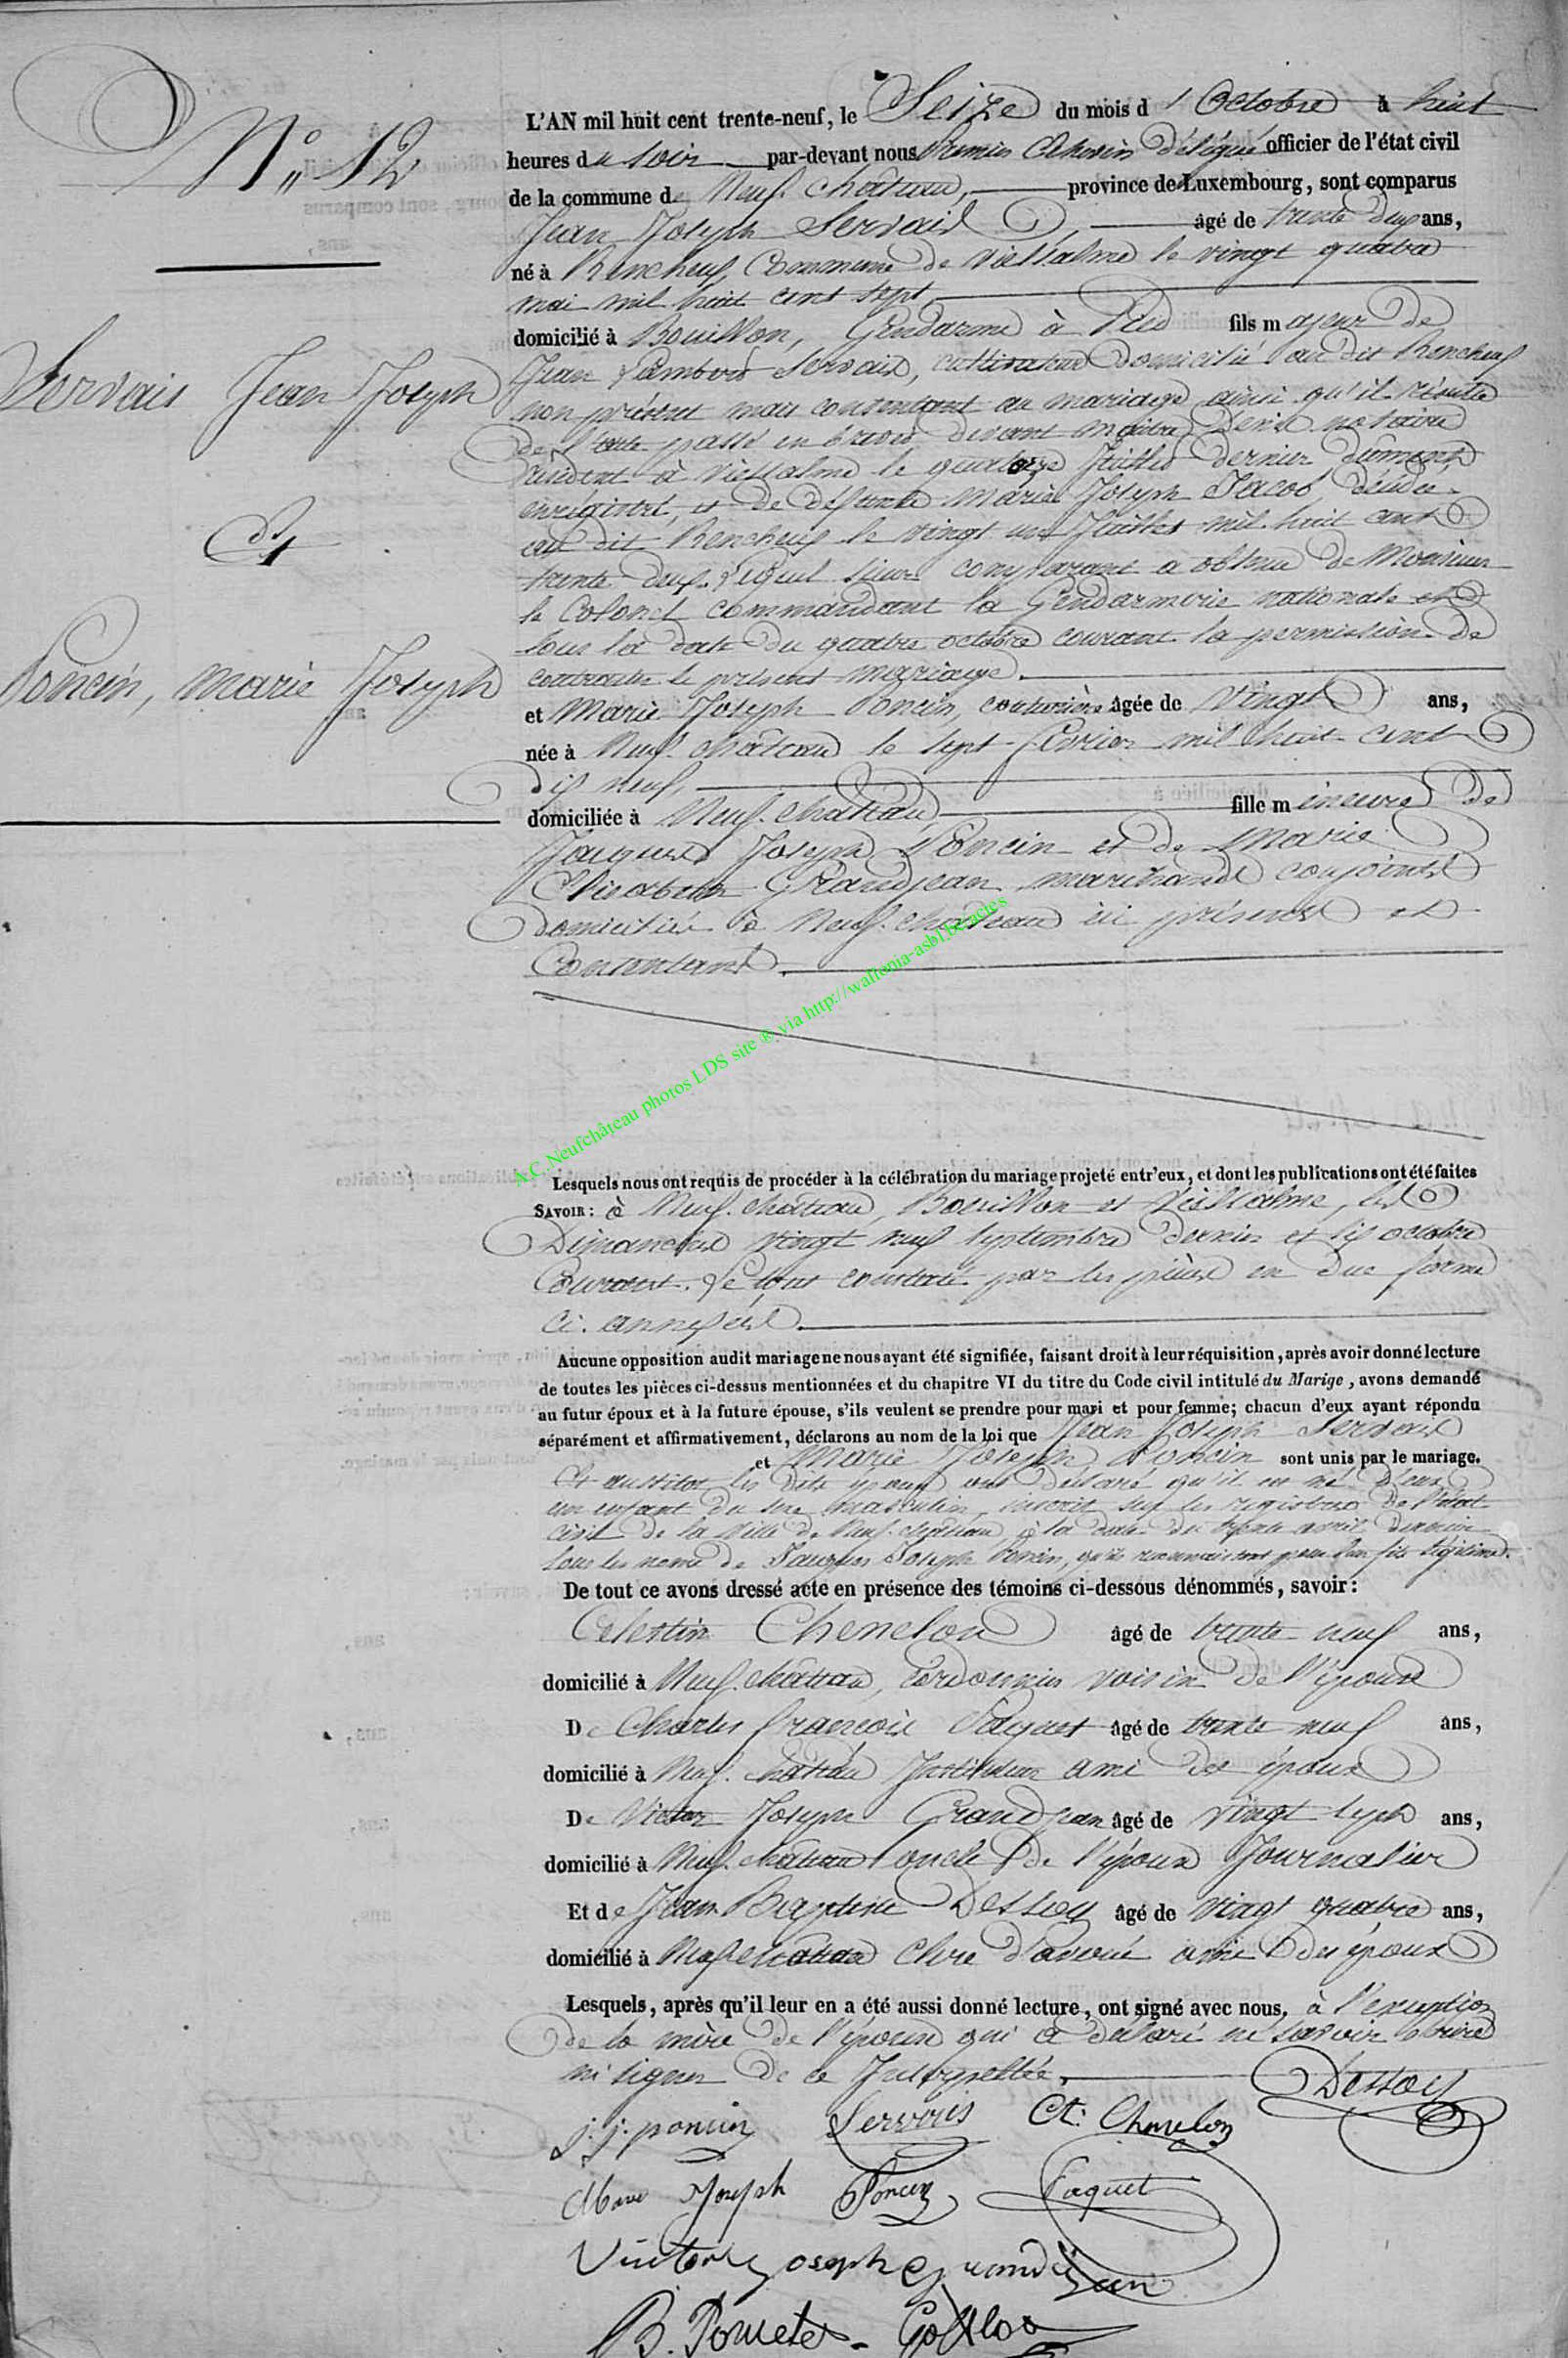 N° 12
Servais Jean Joseph
Et
Poncin, Marie Joseph
L'AN mil huit cent trente-neuf, le Seize du mois d'Octobre à huit
heures du soir par-devant nous Premier Echevin délégué officier de l'état civil
de la commune de Neufchâteau, province de Luxembourg, sont comparus
Jean Joseph Servais, âgé de trente deux ans,
né à Rencheux, Commune de Vielsalm le vingt quatre
mai mil huit cent sept,
domicilié à Bouillon, Gendarme à Pied fils majeur de
Jean Lambert Servais, cultivateur domicilié au dit Rencheux
non présent mais consentant au mariage ainsi qu'il résulte
de l'acte passé en brevet devant Maître notaire
résident à Vielsalm le quatorze Juillet dernier dûment
enrégistré, et de défunte Marie Joseph Jacob, décédée
au dit Rencheux le vingt un Juillet mil huit cent
trente deux. Lequel sieur comparant a obtenu de Monsieur
le Colonel commandant la Gendarmerie nationale
sous la date du quatre octobre courant la permission de
contracter le présent mariage.
et Marie Joseph Poncin, couturière âgée de vingt ans,
née à Neufchâteau le sept février mil huit cent
dix neuf,
domiciliée à Neufchâteau, fille mineure de
Jacques Joseph Poncin et de Marie
Elisabeth Grandjean marchands conjoints
domiciliés à Neufchâteau ici présents et
Consentants.
A.C. Neufchâteau photos LDS site ® via http://wallonia-asbl.be/actes
Lesquels nous ont requis de procéder à la célébration du mariage projeté entr'eux, et dont les publications ont été faites
SAVOIR: à Neufchâteau, Bouillon et Vielsalm, les
Dimanches vingt neuf Septembre dernier et six octobre
Courant. Le tout constaté par les pièces en due forme
ci-annexées.
Aucune opposition audit mariage ne nous ayant été signifiée, faisant droit à leur réquisition, après avoir donné lecture
de toutes les pièces ci-dessus mentionnées et du chapitre VI du titre du Code civil intitulé du Marige, avons demandé
au futur époux et à la future épouse, s'ils veulent se prendre pour mari et pour femme; chacun d'eux ayant répondu
séparément et affirmativement, déclarons au nom de la loi que Jean Joseph Servais
et Marie Joseph Poncin sont unis par le mariage.
Et aussitôt les dits époux ont déclaré qu'il est né d'eux
un enfant du sexe masculin, inscrit sur les registres de l'état
civil de la Ville de Neufchâteau, à la date du trente avril dernier
sous les noms de Jacques Joseph Poncin, qu'ils reconnaissent pour leur fils légitime.
De tout ce avons dressé acte en présence des témoins ci-dessous dénommés, savoir:
Celestin Chenelou âgé de trente neuf ans,
domicilié à Neufchâteau, Cordonnier voisin de l'épouse
De Charles françois Paquet âgé de trente neuf ans,
domicilié à Neufchâteau Instituteur ami des époux
De Victor Joseph Grandjean âgé de vingt sept ans,
domicilié à Neufchâteau oncle de l'épouse Journalier
Et de Jean Baptiste Dessoy âgé de vingt quatre ans,
domicilié à Neufchâteau Clerc d'avoué ami des époux
Lesquels, après qu'il leur en a été aussi donné lecture, ont signé avec nous, à l'exception
de la mère de l'épouse qui a déclaré ne savoir écrire
ni signer de ce Interpellée.
Dessoy
J. J. poncin Servais Ct. Chenelou
Marie Joseph Poncin Paquet
Victor joseph Grandjean